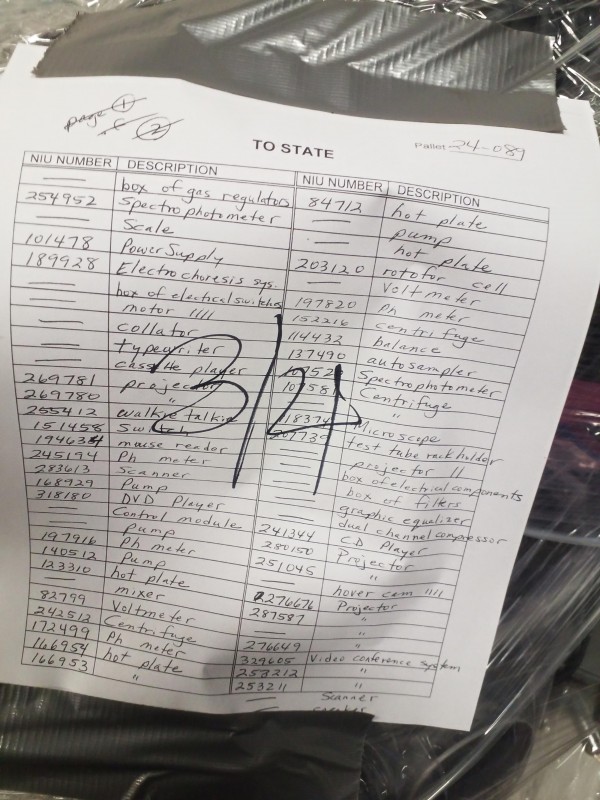 page ①
of ②
TO STATE
Pallet 24-089
NIU NUMBER DESCRIPTION
— box of gas regulators
254952 Spectrophotometer
— Scale
101478 Power Supply
189928 Electrophoresis sys.
— box of electical switches
— motor ||||
— collator
— typewriter
— cassette player
269781 projector
269780 "
255412 walkie talkie
151458 Switch
194634 mouse reader
245194 Ph meter
283613 Scanner
168929 Pump
318180 DVD Player
— Control module
— Pump
197916 Ph meter
140512 Pump
123310 hot plate
— mixer
82799 Voltmeter
242512 Centrifuge
172499 Ph meter
166954 hot plate
166953 "
NIU NUMBER DESCRIPTION
84712 hot plate
— pump
— hot plate
203120 rotofor cell
— Volt meter
197820 Ph meter
152216 centrifuge
114432 balance
137490 autosampler
Spectrophotometer
Centrifuge
"
Microscope
test tube rack holder
— projector ||
— box of electrical components
— box of filters
— graphic equalizer
— dual channel compressor
241344 CD Player
280150 Projector
251045 "
— hover cam ||||
2276676 Projector
287587 "
"
276649 "
329605 Video conference system
253212 "
253211 "
— Scanner
— speaker
3/21